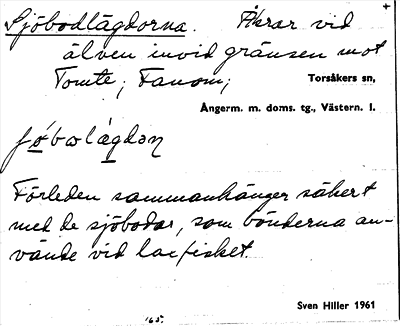 Sjöbodlägdorna. Åkrar vid
älven invid gränsen mot
Tomte; Fanom;
Torsåkers sn,
Ångerm. m. doms. tg., Västern. l.
Förleden sammanhänger säkert
med de sjöbodar, som bönderna an-
vände vid laxfisket.
Sven Hiller 1961
'65.